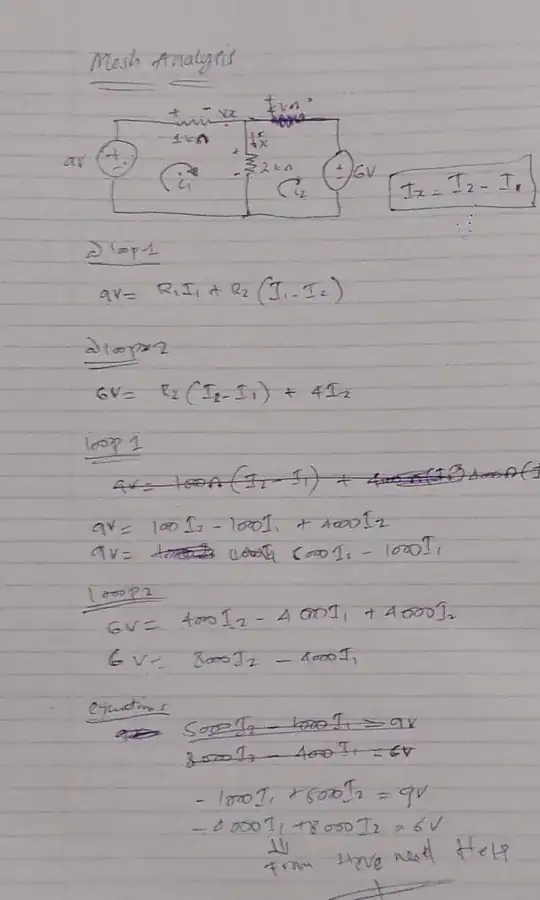 Mesh Analysis
+ - Vx
1kΩ
Ix
9V
+
-
2kΩ
i1
i2
6V
Ix = I2 - I1
loop-1
9V = R1I1 + R2 (I1 - I2)
loop 2
6V = R2 (I2 - I1) + 4I2
loop 1
9V = 100 I2 - 1000I1 + 4000I2
9V = 5000I2 - 1000I1
loop 2
6V = 4000I2 - 4000I1 + 4000I2
6V = 8000I2 - 4000I1
equations
5000I2 - 1000I1 = 9V
8000I2 - 400I1 = 6V
- 1000I1 + 5000I2 = 9V
- 4000I1 + 8000I2 = 6V
from Here need Help